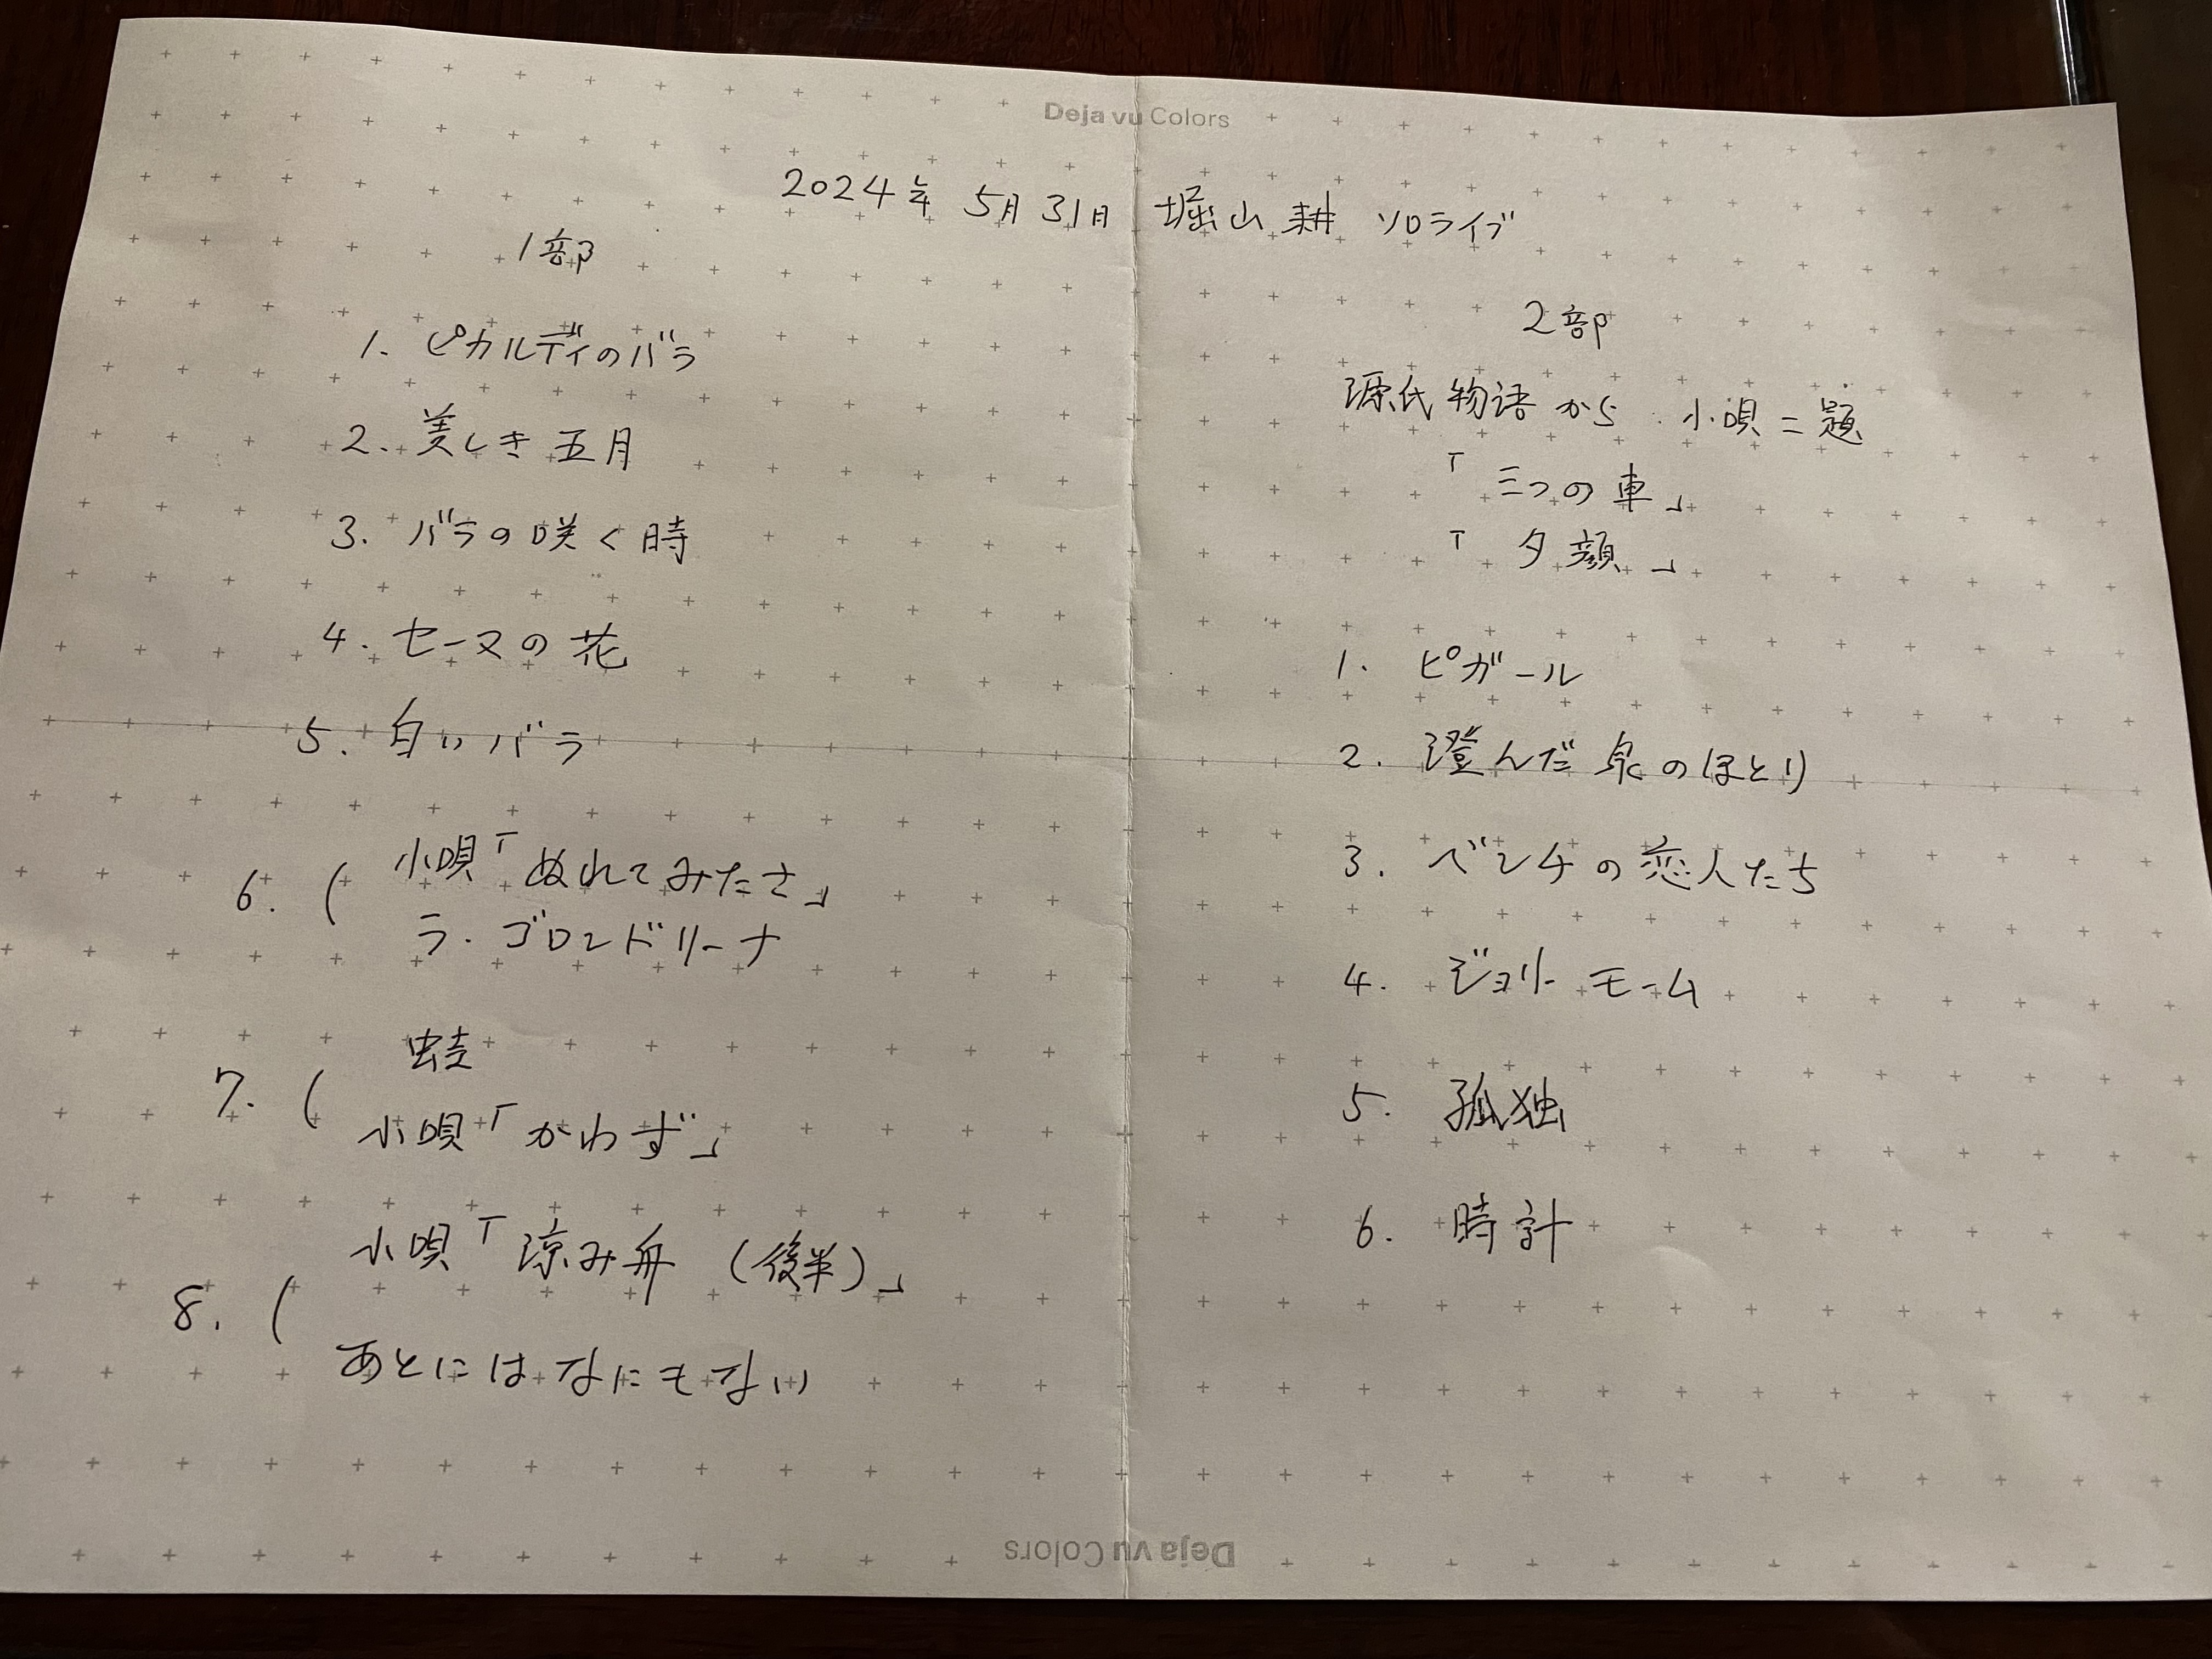 Deja vu Colors
2024年 5月31日 堀山耕 ソロライブ
1部
1. ピカルディのバラ
2. 美しき五月
3. バラの咲く時
4. セーヌの花
5. 白いバラ
6. ( 小唄「ぬれてみたさ」
ラ・ゴロンドリーナ
7. ( 蛙
小唄「かわず」
8. ( 小唄「涼み舟 (後半)」
あとにはなにもない
2部
源氏物語から 小唄二題
「三つの車」
「夕顔」
1. ピガール
2. 澄んだ泉のほとり
3. ベンチの恋人たち
4. ジョリーモーム
5. 孤独
6. 時計
Deja vu Colors